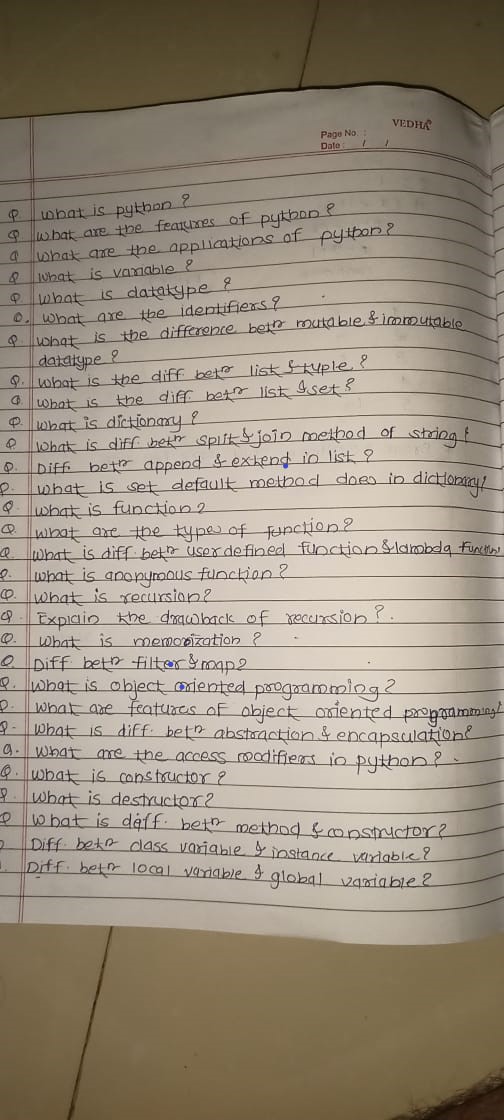 VEDHA
Page No. :
Date : / /
Q what is python?
Q what are the features of python?
Q what are the applications of python?
Q what is variable?
Q what is datatype?
Q. what are the identifiers?
Q what is the difference betn mutable & immutable
datatype?
Q. what is the diff. betn list & tuple?
Q what is the diff betn list & set?
Q. what is dictionary?
Q what is diff. betn split & join method of string?
Q. Diff betn append & extend in list?
Q. what is set default method does in dictionary?
Q. what is function?
Q what are the types of function?
Q what is diff. betn userdefined function & lambda function
Q. what is anonymous function?
Q. what is recursion?
Q. Explain the drawback of recursion?.
Q. what is memorization?
Q Diff betn filter & map?
Q. what is object oriented programming?
Q. what are features of object oriented programming?
Q. what is diff. betn abstraction & encapsulation?
Q. what are the access modifiers in python?.
Q. what is constructor?
Q. what is destructor?
Q what is diff. betn method & constructor?
Diff. betn class variable & instance variable?
Diff. betn local variable & global variable?